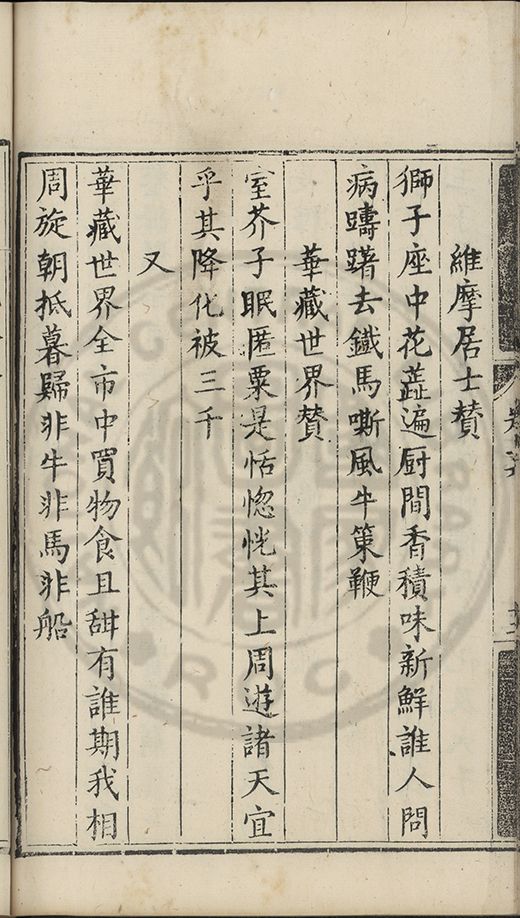 維摩居士賛
獅子座中花蕋遍厨間香積味新鮮誰人問
病躊躇去鐵馬嘶風牛策鞭
華藏世界賛
室芥子眠匿粟是恬惚恍其上周遊諸天宜
乎其降化被三千
又
華藏世界全市中買物食且甜有誰期我相
周旋朝抵暮歸非牛非馬非船